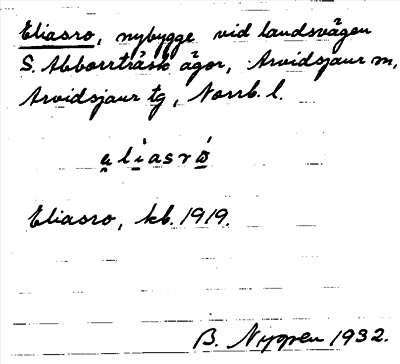 Eliasro, nybygge vid landsvägen
S. Abborrträsk ägor, Arvidsjaur m,
Arvidsjaur tg, Norrb. l.
Eliasro, kb. 1919.
B. Nyppen 1932.